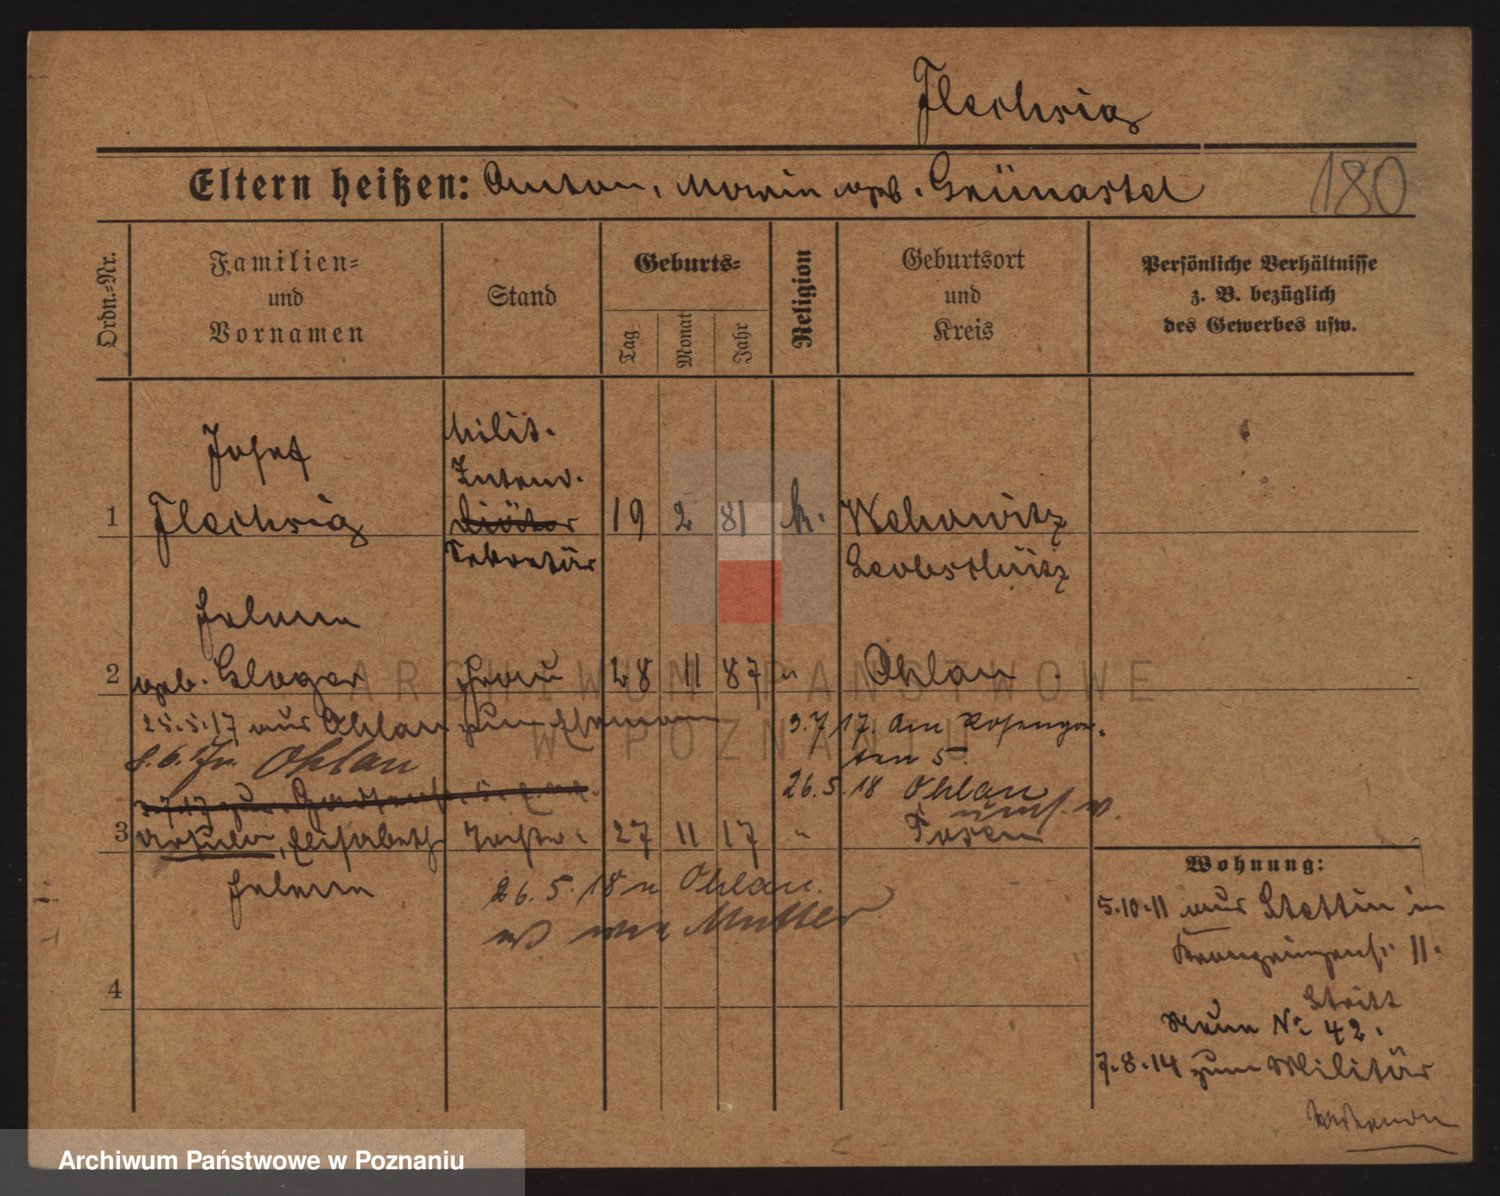 Flechsig
Eltern heißen: Anton, Maria geb. Grünastel
180
Ordn.-Nr.
Familien-
und
Vornamen
Stand
Geburts-
Tag
Monat
Jahr
Religion
Geburtsort
und
Kreis
Persönliche Verhältnisse
z. B. bezüglich
des Gewerbes usw.
1
Josef
Flechsig
Milit.
Intend.
Diätar
Sekretär
19 2 81 k.
Leobschütz
2
Helene
geb. Gloger
Frau
28 11 87 "
Ohlau
25.5.17 aus Ohlau zum Ehemann
Ohlau
3.7.17. Am Rosengar-
ten 5.
26.5.18 Ohlau
3
Ursula, Elisabeth
Helene
Tochter
27 11 17 "
Posen
26.5.18 n Ohlau
wie Mutter
4
Wohnung:
5.10.11 aus Stettin in
Kronprinzenstr. 11.
Neue Nr 42.
7.8.14 zum Militär
ARCHIWUM PAŃSTWOWE
W POZNANIU
Archiwum Państwowe w Poznaniu